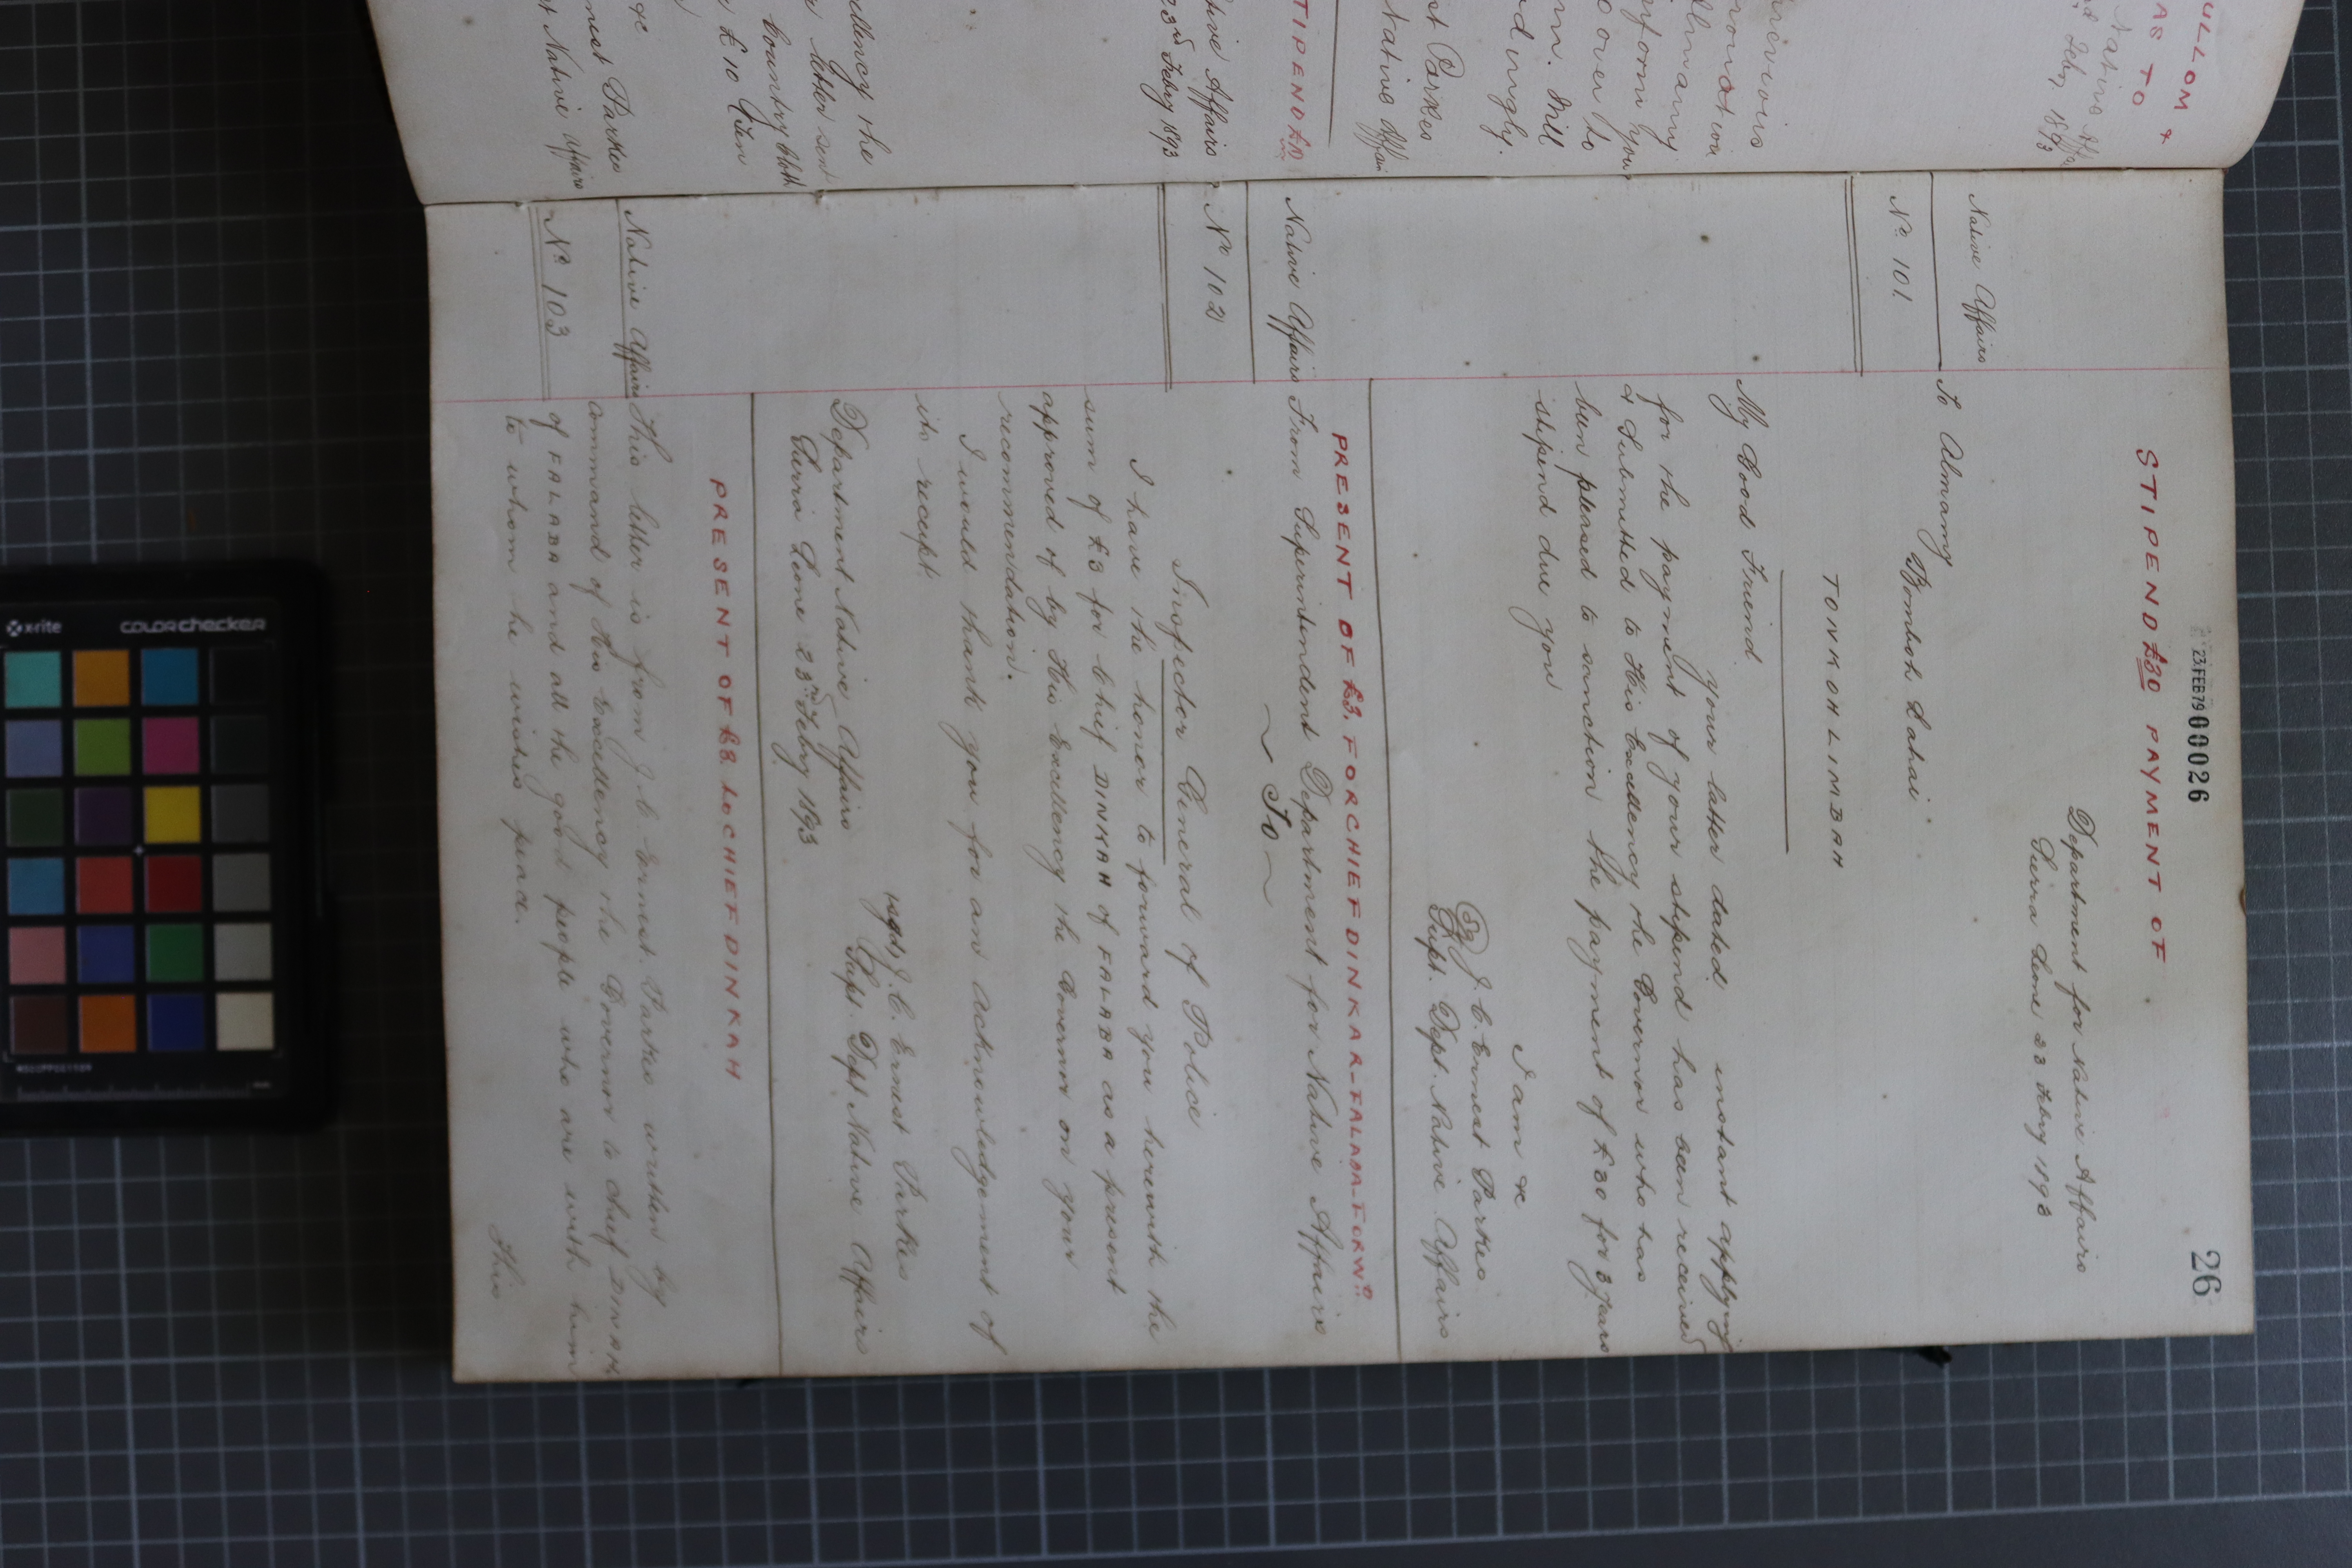 23 FEB 79 00026
26
STIPEND £30 PAYMENT OF
Department for Native Affairs
Sierra Leone 23 Febry 1893
Native Affairs
No. 101
To Almamy
Bomboh Lahai
TONKOH LIMBAH
My Good Friend
your letter dated instant applying
for the payment of your stipend has been received
& submitted to His Excellency the Governor who has
been pleased to sanction the payment of £30 for 3 years
stipend due you
I am &c
(Sg) J. C. Ernest Parkes
Supt. Dept. Native Affairs
PRESENT OF £3. FOR CHIEF DINKAR-FALABA-FORWD.
Native Affairs
No. 102
From Superintendent Department for Native Affairs
~ To ~
Inspector General of Police
I have the honor to forward you herewith the
sum of £3 for Chief DINKAH of FALABA as a present
approved of by His Excellency the Governor on your
recommendation.
I would thank you for an acknowledgement of
its receipt.
J. C. Ernest Parkes
Supt. Dept Native Affairs
Department Native Affairs
Sierra Leone 23rd Febry 1893
PRESENT OF £3. to CHIEF DINKAH
Native Affairs
No. 103
This letter is from J. C. Ernest Parkes written by
command of His Excellency the Governor to Chief DINKAH
of FALABA and all the good people who are with him
to whom he wishes peace.
This
ULLOM &
AS TO
Native Aff
Feby 1893
Almamy
inform your
over to
m. Will
dingly.
nt Parkes
Native Affairs
TIPEND £10
tive Affairs
23rd Febry 1893
ellency the
letter sent
Country Cloth
£10 Given
&c
nest Parkes
t Native Affairs
x-rite colorchecker